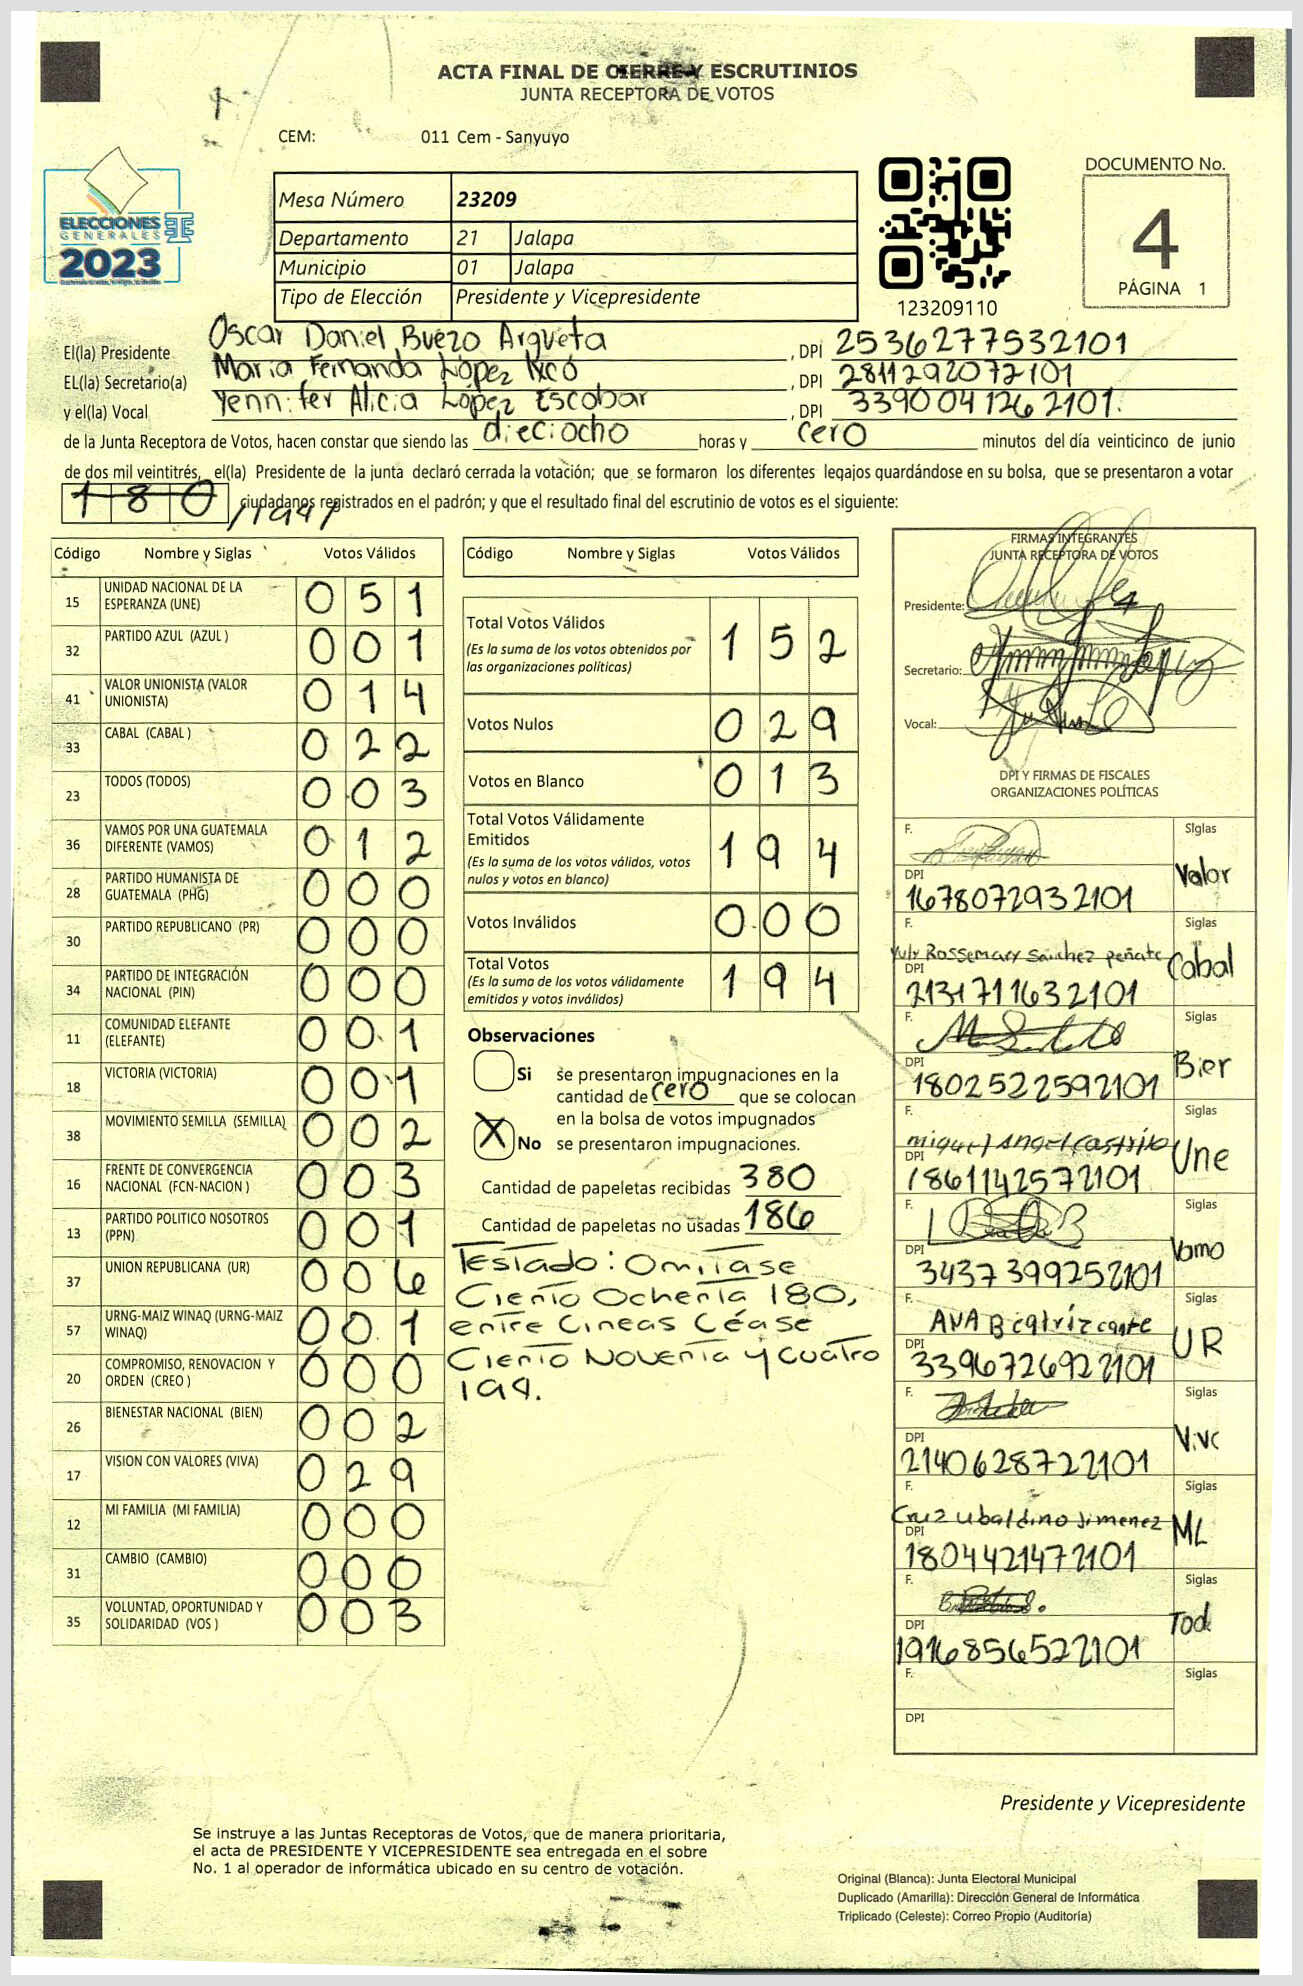 ACTA FINAL DE CIERRE Y ESCRUTINIOS
JUNTA RECEPTORA DE VOTOS
CEM: 011 Cem - Sanyuyo
ELECCIONES
GENERALES
2023
Mesa Número 23209
Departamento 21 Jalapa
Municipio 01 Jalapa
Tipo de Elección Presidente y Vicepresidente
123209110
DOCUMENTO No.
4
PÁGINA 1
El(la) Presidente Oscar Daniel Buezo Argueta, DPI 2536277532101
EL(la) Secretario(a) Maria Fernanda López Ixcó, DPI 2811292072101
y el(la) Vocal Yennifer Alicia López Escobar, DPI 3390041262101.
de la Junta Receptora de Votos, hacen constar que siendo las dieciocho horas y cero minutos del día veinticinco de junio
de dos mil veintitrés, el(la) Presidente de la junta declaró cerrada la votación; que se formaron los diferentes legajos guardándose en su bolsa, que se presentaron a votar
180 /194/ ciudadanos registrados en el padrón; y que el resultado final del escrutinio de votos es el siguiente:
Código Nombre y Siglas Votos Válidos
15 UNIDAD NACIONAL DE LA ESPERANZA (UNE) 051
32 PARTIDO AZUL (AZUL ) 001
41 VALOR UNIONISTA (VALOR UNIONISTA) 014
33 CABAL (CABAL ) 022
23 TODOS (TODOS) 003
36 VAMOS POR UNA GUATEMALA DIFERENTE (VAMOS) 012
28 PARTIDO HUMANISTA DE GUATEMALA (PHG) 000
30 PARTIDO REPUBLICANO (PR) 000
34 PARTIDO DE INTEGRACIÓN NACIONAL (PIN) 000
11 COMUNIDAD ELEFANTE (ELEFANTE) 001
18 VICTORIA (VICTORIA) 001
38 MOVIMIENTO SEMILLA (SEMILLA) 002
16 FRENTE DE CONVERGENCIA NACIONAL (FCN-NACION ) 003
13 PARTIDO POLITICO NOSOTROS (PPN) 001
37 UNION REPUBLICANA (UR) 006
57 URNG-MAIZ WINAQ (URNG-MAIZ WINAQ) 001
20 COMPROMISO, RENOVACION Y ORDEN (CREO ) 000
26 BIENESTAR NACIONAL (BIEN) 002
17 VISION CON VALORES (VIVA) 029
12 MI FAMILIA (MI FAMILIA) 000
31 CAMBIO (CAMBIO) 000
35 VOLUNTAD, OPORTUNIDAD Y SOLIDARIDAD (VOS ) 003
Código Nombre y Siglas Votos Válidos
Total Votos Válidos 152
(Es la suma de los votos obtenidos por
las organizaciones políticas)
Votos Nulos 029
Votos en Blanco 013
Total Votos Válidamente
Emitidos 194
(Es la suma de los votos válidos, votos
nulos y votos en blanco)
Votos Inválidos 000
Total Votos 194
(Es la suma de los votos válidamente
emitidos y votos inválidos)
Observaciones
Si se presentaron impugnaciones en la
cantidad de cero que se colocan
en la bolsa de votos impugnados
X No se presentaron impugnaciones.
Cantidad de papeletas recibidas 380
Cantidad de papeletas no usadas 186
Testado: Omitase
Ciento Ochenta 180,
entre Lineas Léase
Ciento Noventa y cuatro
194.
FIRMAS INTEGRANTES
JUNTA RECEPTORA DE VOTOS
Presidente:
Secretario:
Vocal:
DPI Y FIRMAS DE FISCALES
ORGANIZACIONES POLÍTICAS
F. Siglas
DPI 1678072932101 Valor
F. Yuly Rossemary Sánchez peñate Siglas
DPI 2131711632101 Cabal
F. Siglas
DPI 1802522592101 Bier
F. miguel Angel castrillo Siglas
DPI 1861142572101 Une
F. Siglas
DPI 3437399252101 Vamo
F. ANA Beatriz cante Siglas
DPI 3396726922101 UR
F. Siglas
DPI 2140628722101 Vivc
F. Cruz Ubaldino Jimenez Siglas
DPI 1804421472101 ML
F. Siglas
DPI 1916856522101 Tod
F. Siglas
DPI
Presidente y Vicepresidente
Se instruye a las Juntas Receptoras de Votos, que de manera prioritaria,
el acta de PRESIDENTE Y VICEPRESIDENTE sea entregada en el sobre
No. 1 al operador de informática ubicado en su centro de votación.
Original (Blanca): Junta Electoral Municipal
Duplicado (Amarilla): Dirección General de Informática
Triplicado (Celeste): Correo Propio (Auditoría)